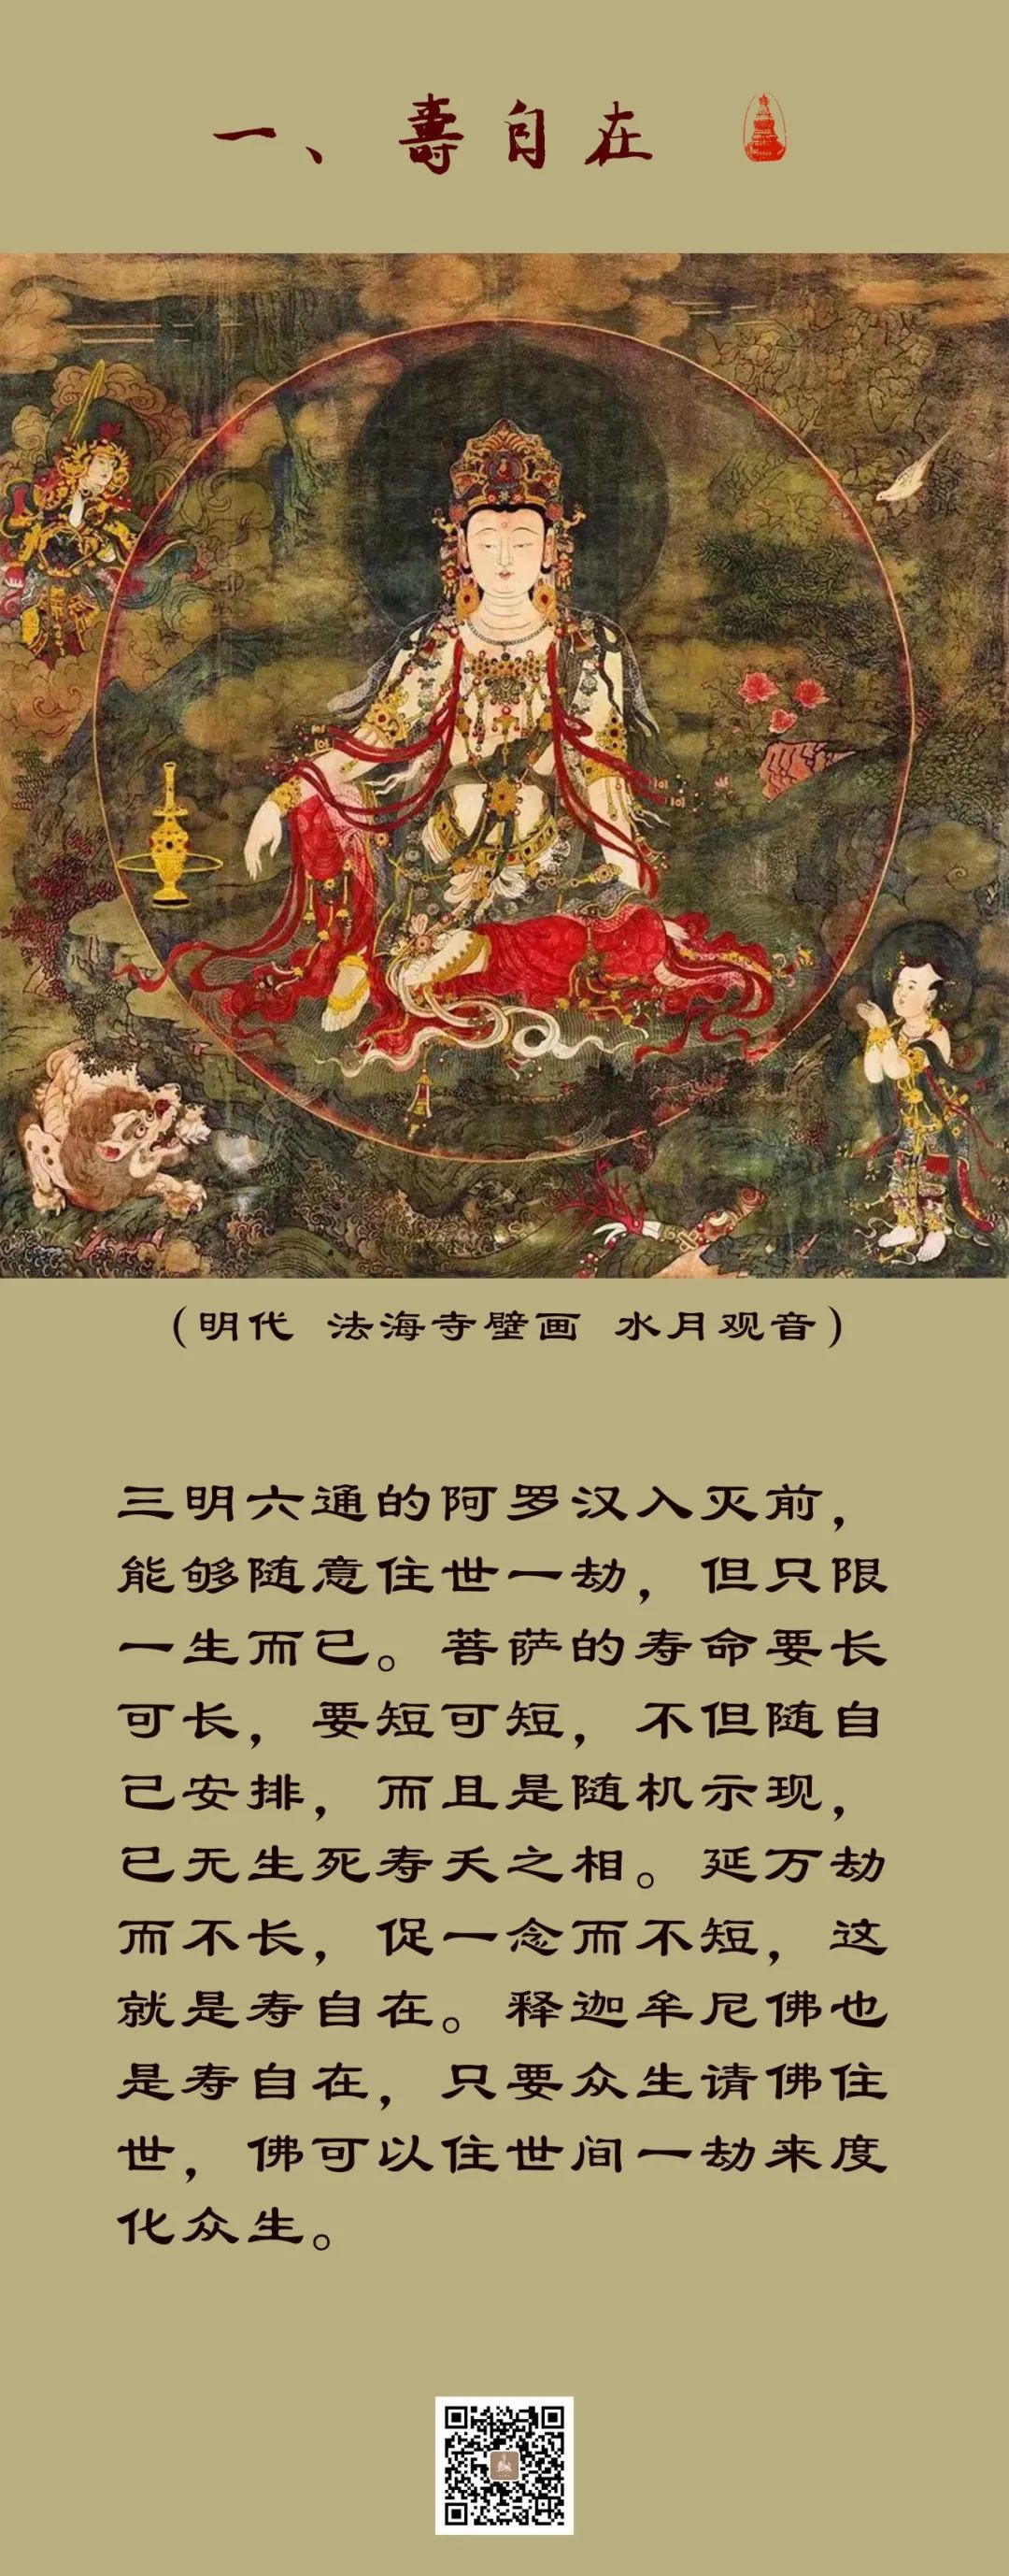 一、壽自在
（明代 法海寺壁画 水月观音）
三明六通的阿罗汉入灭前，
能够随意住世一劫，但只限
一生而已。菩萨的寿命要长
可长，要短可短，不但随自
己安排，而且是随机示现，
已无生死寿夭之相。延万劫
而不长，促一念而不短，这
就是寿自在。释迦牟尼佛也
是寿自在，只要众生请佛住
世，佛可以住世间一劫来度
化众生。